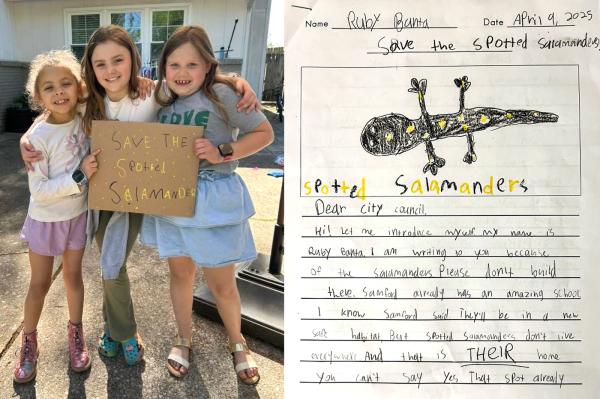 SAVE THE
SPOTTED
SALAMANDER
LOVE
Name Ruby Banta Date APril 9, 2025
Save the sPotted salamanders
spotted Salamanders
Dear city council,
Hi! Let me introduce myself my name is
Ruby Banta. I am writing to you because
of the salamanders Please don't build
there. Samford already has an amazing school
I know Samford said They'll be in a new
safe habitat, But spotted salamanders don't live
everywhere And that is THEIR home
You can't say yes That spot already